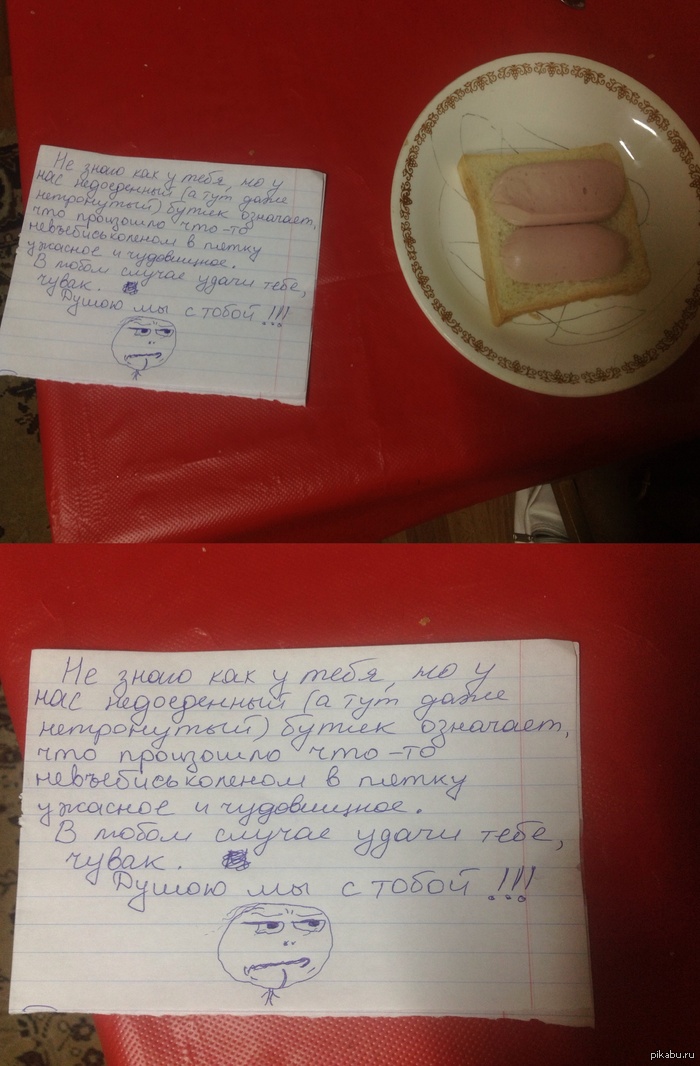 Не знаю как у тебя, но у
нас недоеденный (а тут даже
нетронутый) бутик означает,
что произошло что-то
невъебиськоленом в пятку
ужасное и чудовищное.
В любом случае удачи тебе,
чувак.
Душою мы с тобой !!!
Не знаю как у тебя, но у
нас недоеденный (а тут даже
нетронутый) бутик означает,
что произошло что-то
невъебиськоленом в пятку
ужасное и чудовищное.
В любом случае удачи тебе,
чувак.
Душою мы с тобой !!!
pikabu.ru